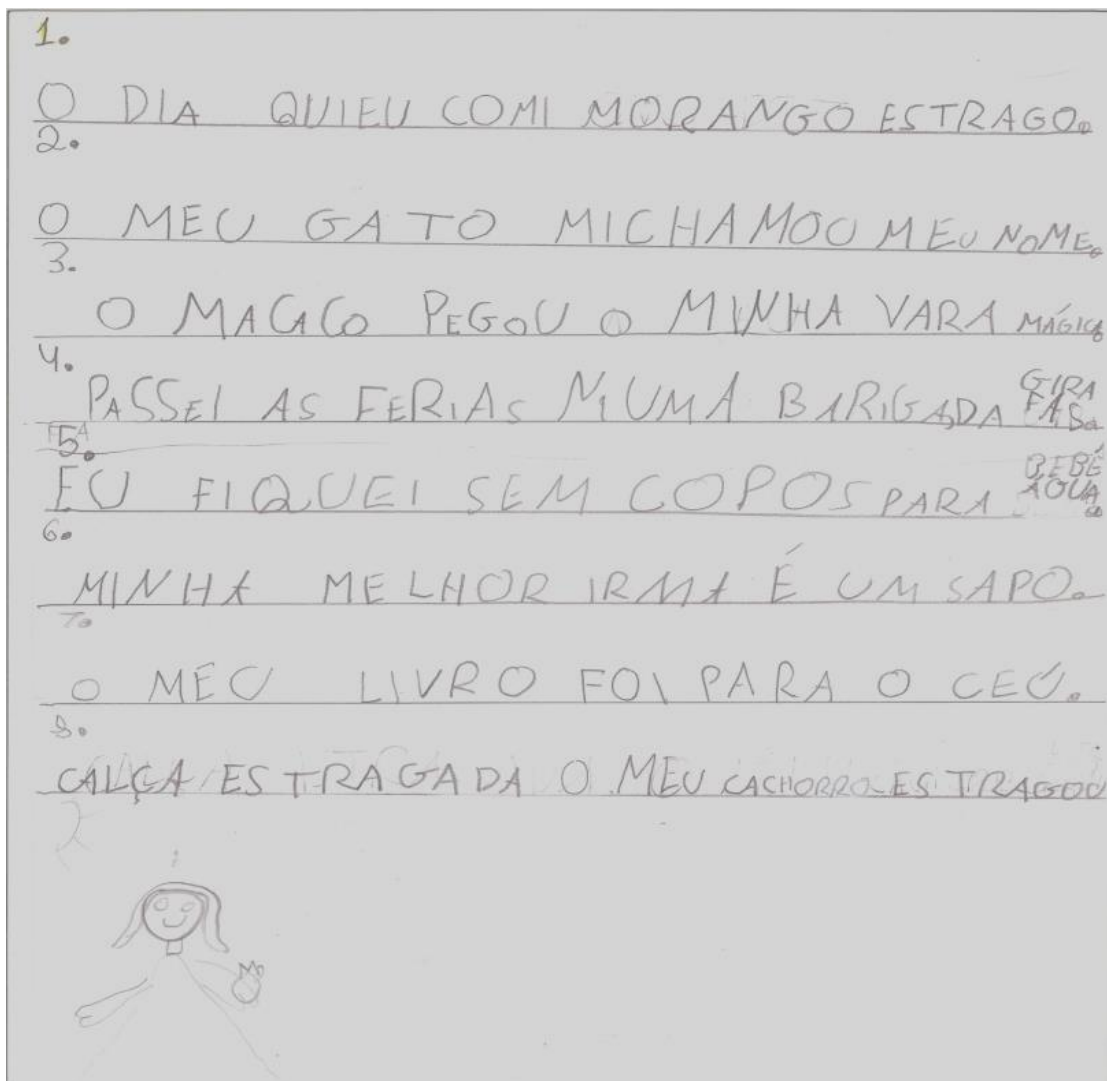 1.
O DIA QUIEU COMI MORANGO ESTRAGO.
2.
O MEU GATO MICHAMOU MEU NOME.
3.
O MACACO PEGOU O MINHA VARA MÁGICA
4.
PASSEI AS FERIAS NUMA BARIGADA GIRA
FA
5.
EU FIQUEI SEM COPOS PARA BEBÉ
ÁGUA.
6.
MINHA MELHOR IRMA É UM SAPO.
7.
O MEU LIVRO FOI PARA O CEÚ.
8.
CALÇA ESTRAGADA O MEU CACHORRO ESTRAGOU